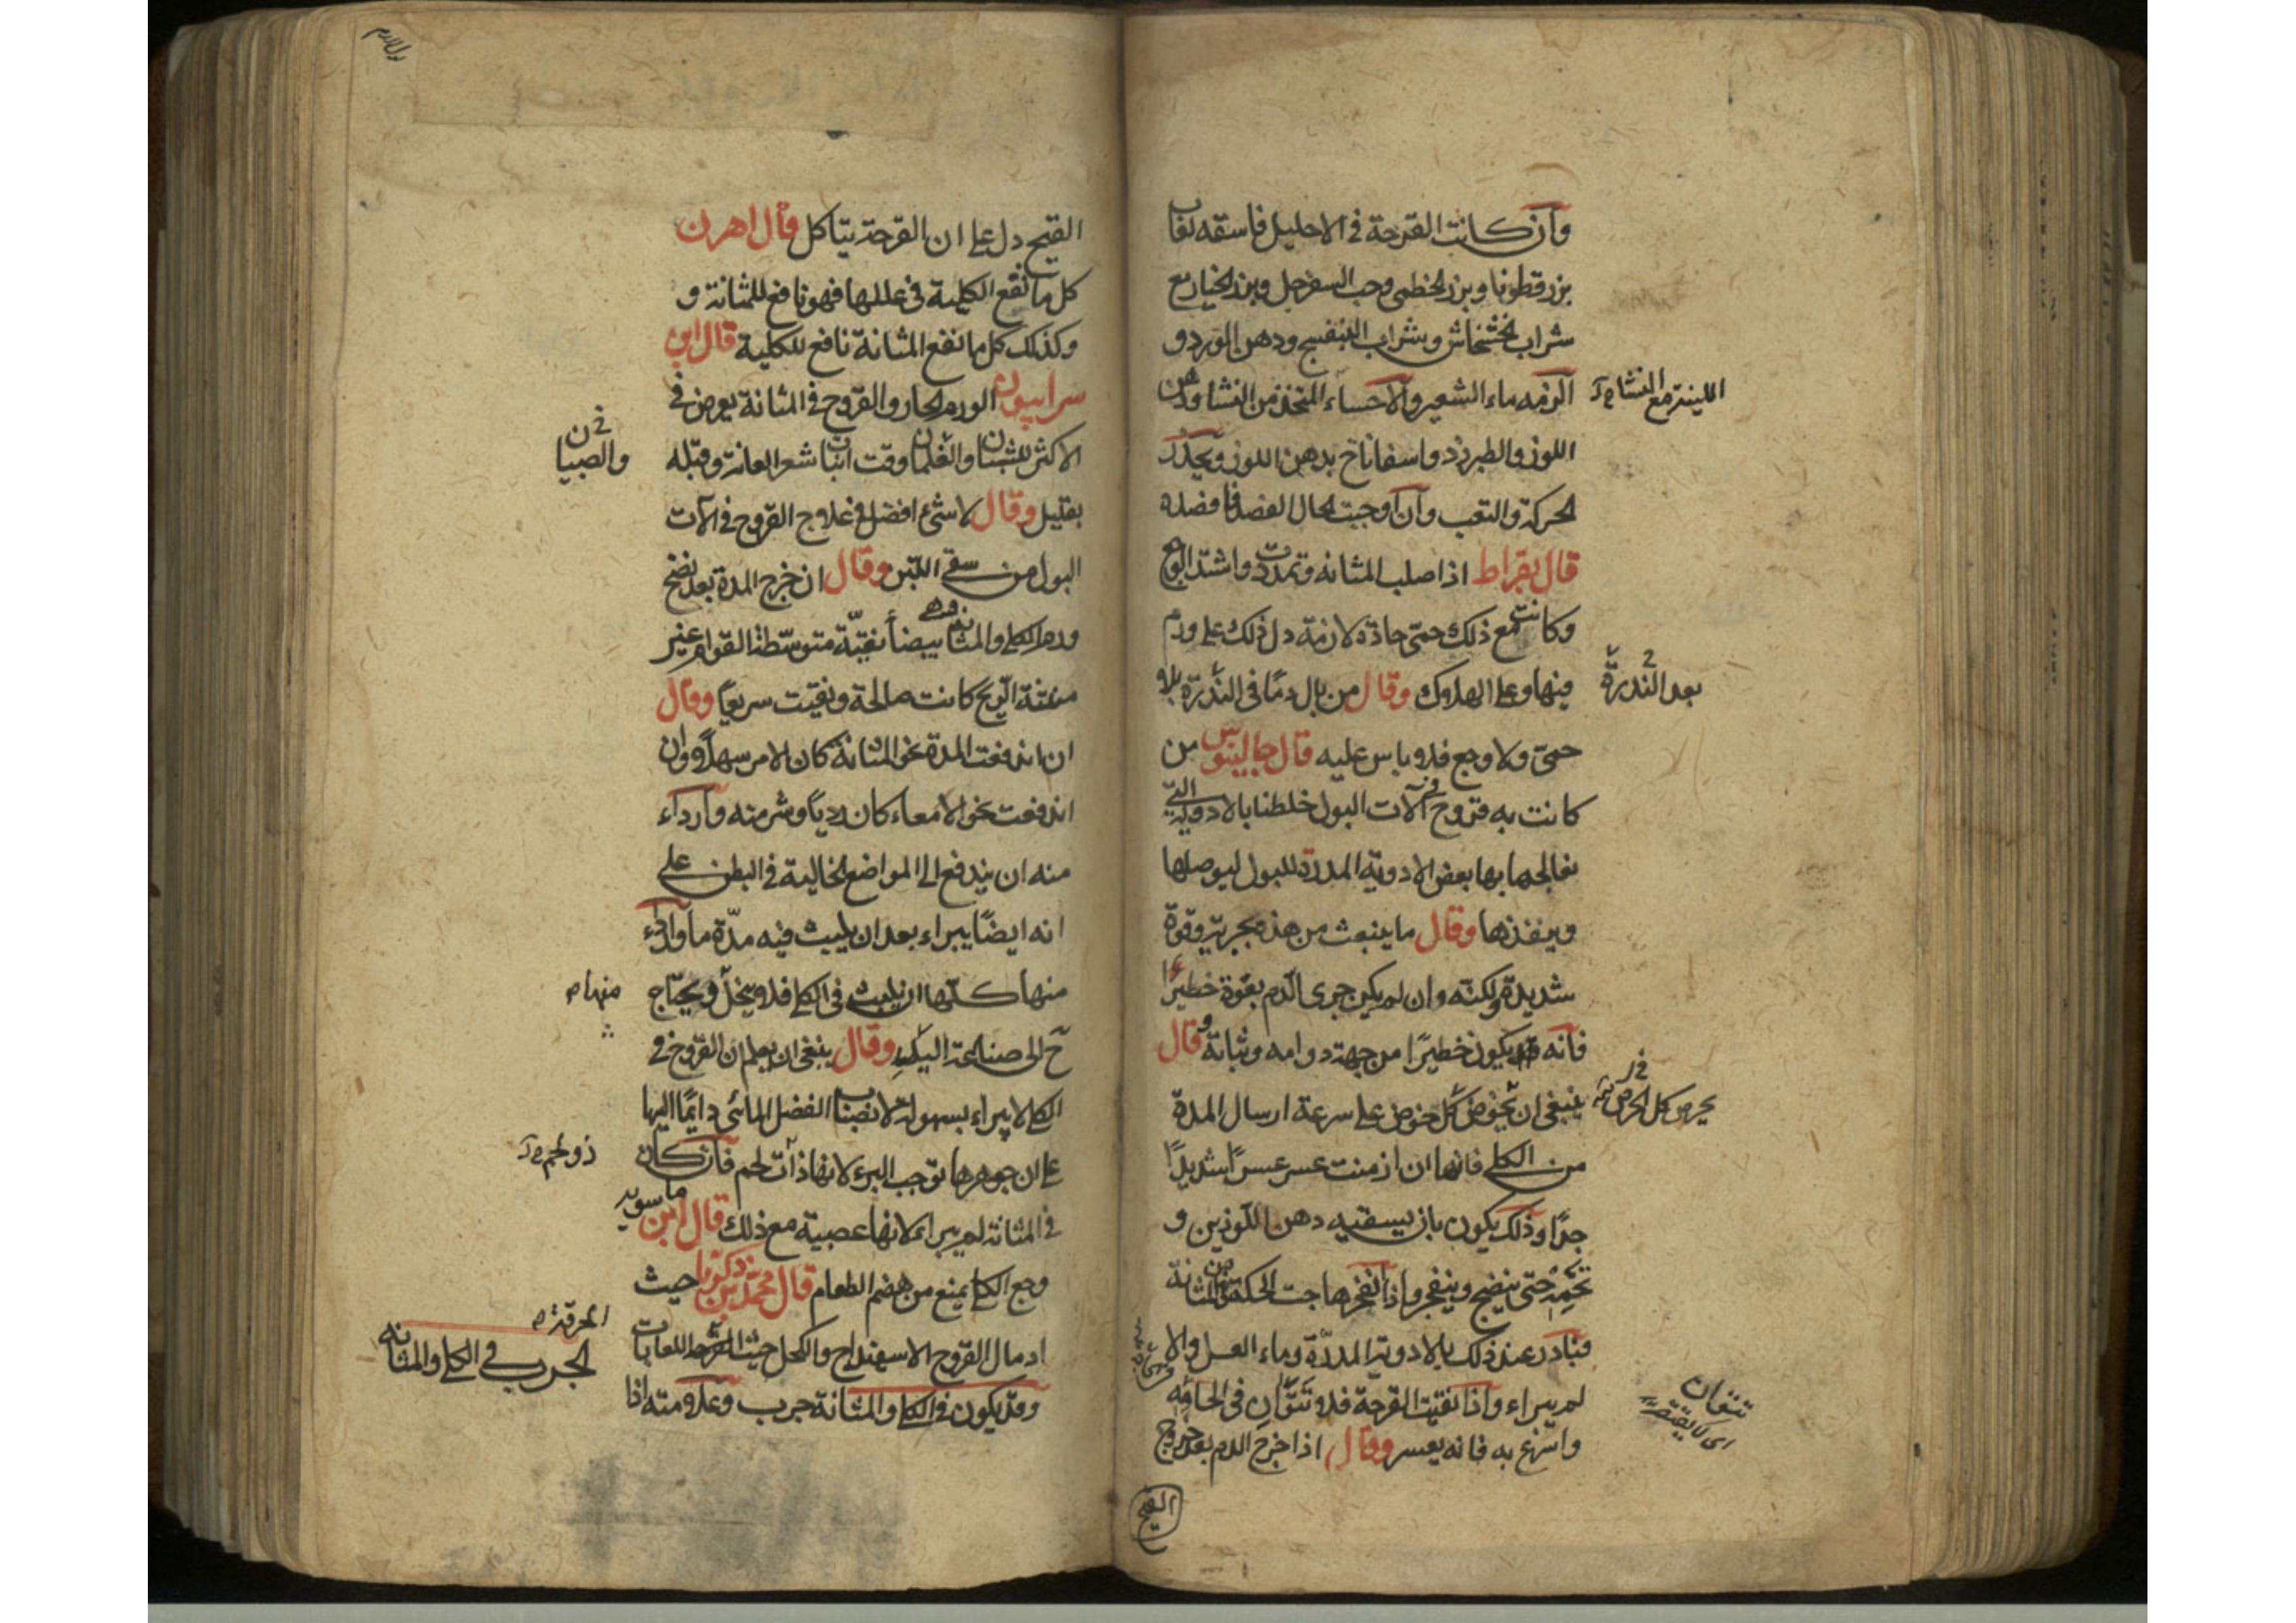 وان كانت القرحة في الاحليل فاسقه لعاب
بزرقطونا وبزر الخطمى وحب السفرجل وبزر الخيار مع
شراب الخشخاش وشراب البنفسج ودهن الورد و
الزمه ماء الشعير والاحساء المتخذ من النشا ودهن
اللينة مع النشا
اللوز والطبرزد واسفاناخ بدهن اللوز ويحذر
الحركة والتعب وان اوجبت الحال الفصد فافصده
قال بقراط اذا صلب المثانه وتمددت واشتد الوجع
وكانت مع ذلك حمى حادة لازمة دل ذلك على ورم
فيها وعلى الهلاك وقال من بال دمًا في الندرة بلا
بعد الندرة
حمى ولا وجع فلا باس عليه قال جالينوس من
كانت به قروح في آلات البول خلطنا بالادوية التي
نعالجها بها بعض الادوية المدرة للبول ليوصلها
وينفذها وقال ما ينبعث من هذه بجرية وقوة
شديدة ولكنه وان لم يكن جرى الدم بقوة خطيرًا
فانه قد يكون خطيرًا من جهة دوامه وثباته وقال
ينبغي ان تحوض كل حوض على سرعة ارسال المدة
يحرص كل الحرص
من الكلى فانها ان ازمنت عسر عسرًا شديدًا
جدًا وذلك يكون بان يسقيه دهن اللوزين و
حتى ينضج وينفجر واذا انفجر هاجت الحكة من المثانة
فبادر عند ذلك بالادوية المدرة وماء العسل والا
لم يبراء واذا نقيت القرحة فلا تتوان في الحامه
تتغان
واسرع به فانه يعسر وقال اذا خرج الدم بعد خروج
القيح
القيح دل على ان القرحة يتاكل قال اهرن
كل ما نفع الكلية في عللها فهو نافع للمثانة و
وكذلك كل ما نفع المثانة نافع للكلية قال ابن
سرابيون الورم الحار والقروح في المثانة يعرض في
الاكثر للشبان والغلمان وقت انبات شعر العانة وقبله
والصبيان
بقليل وقال لا شئ افضل في علاج القروح في آلات
البول من سقي اللبن وقال ان خرج المدة بعد نضج
ورم الكلى والمثانة وهي بيضاء نقيّة متوسّطة القوام غير
منتنة الريح كانت صالحة ونقيت سريعًا وقال
ان اندفعت المدة نحو المثانة كان الامر سهلًا وان
اندفعت نحو الامعاء كان رديًا وشر منه وارداء
منه ان يندفع الى المواضع الخالية في البطن على
انه ايضًا يبراء بعد ان يلبث فيه مدّة ما واردء
منها كلّها ان يلبث في الكلى فلا يتحلّل ويحتاج
منها
ح الى صناعة اليد وقال ينبغي ان يعلم ان القروح في
الكلى لا يبراء بسهولة لانصباب الفضل المائى دائمًا اليها
على ان جوهرها توجب البرء لانها ذات لحم فان كان
ذو لحم
في المثانة لم يبراء لانها عصبية مع ذلك قال ابن ماسويه
وجع الكلى يمنع من هضم الطعام قال محمد بن زكريا حيث
ادمال القروح الاسفيداج والكحل حيث اللعابات
المحرقة
الجرب في الكلى والمثانه
وقد يكون في الكلى والمثانة جرب وعلامته اذا